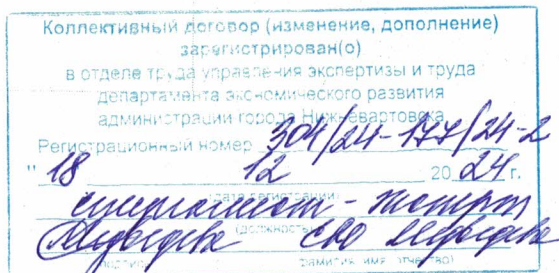 Коллективный договор (изменение, дополнение)
зарегистрирован(о)
в отделе труда управления экспертизы и труда
департамента экономического развития
администрации города Нижневартовска
Регистрационный номер 304/24-177/24-2
"18 12 2024 г.
(дата регистрации)
специалист-эксперт
(должность)
Медведева
фамилия, имя, отчество)